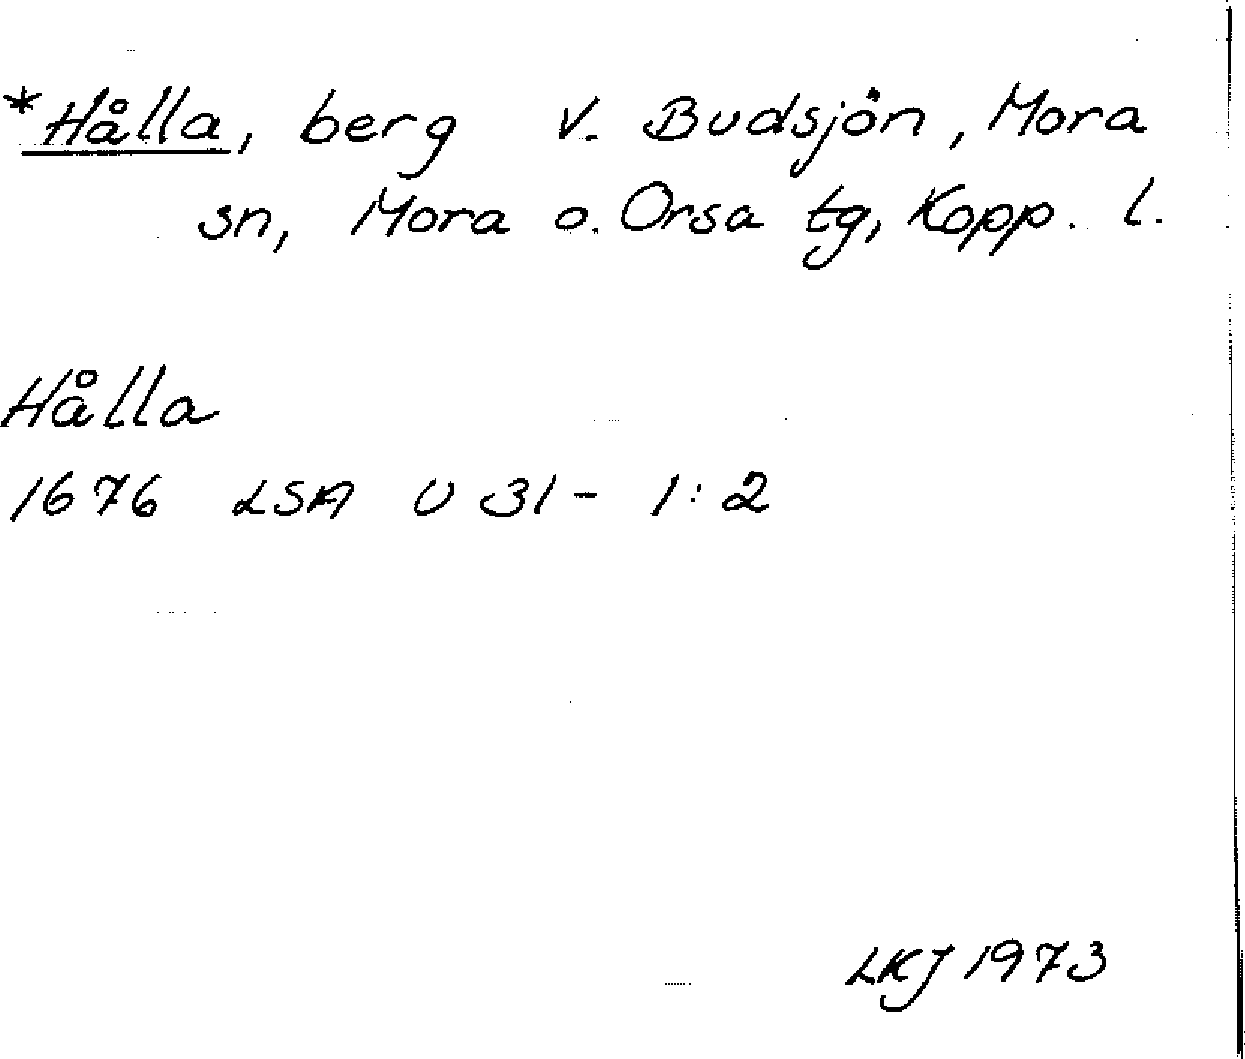 *Hålla, berg V. Budsjön, Mora
sn, Mora o. Orsa tg, Kopp. l.
Hålla
1676 LSA U 31- 1:2
LKJ 1973